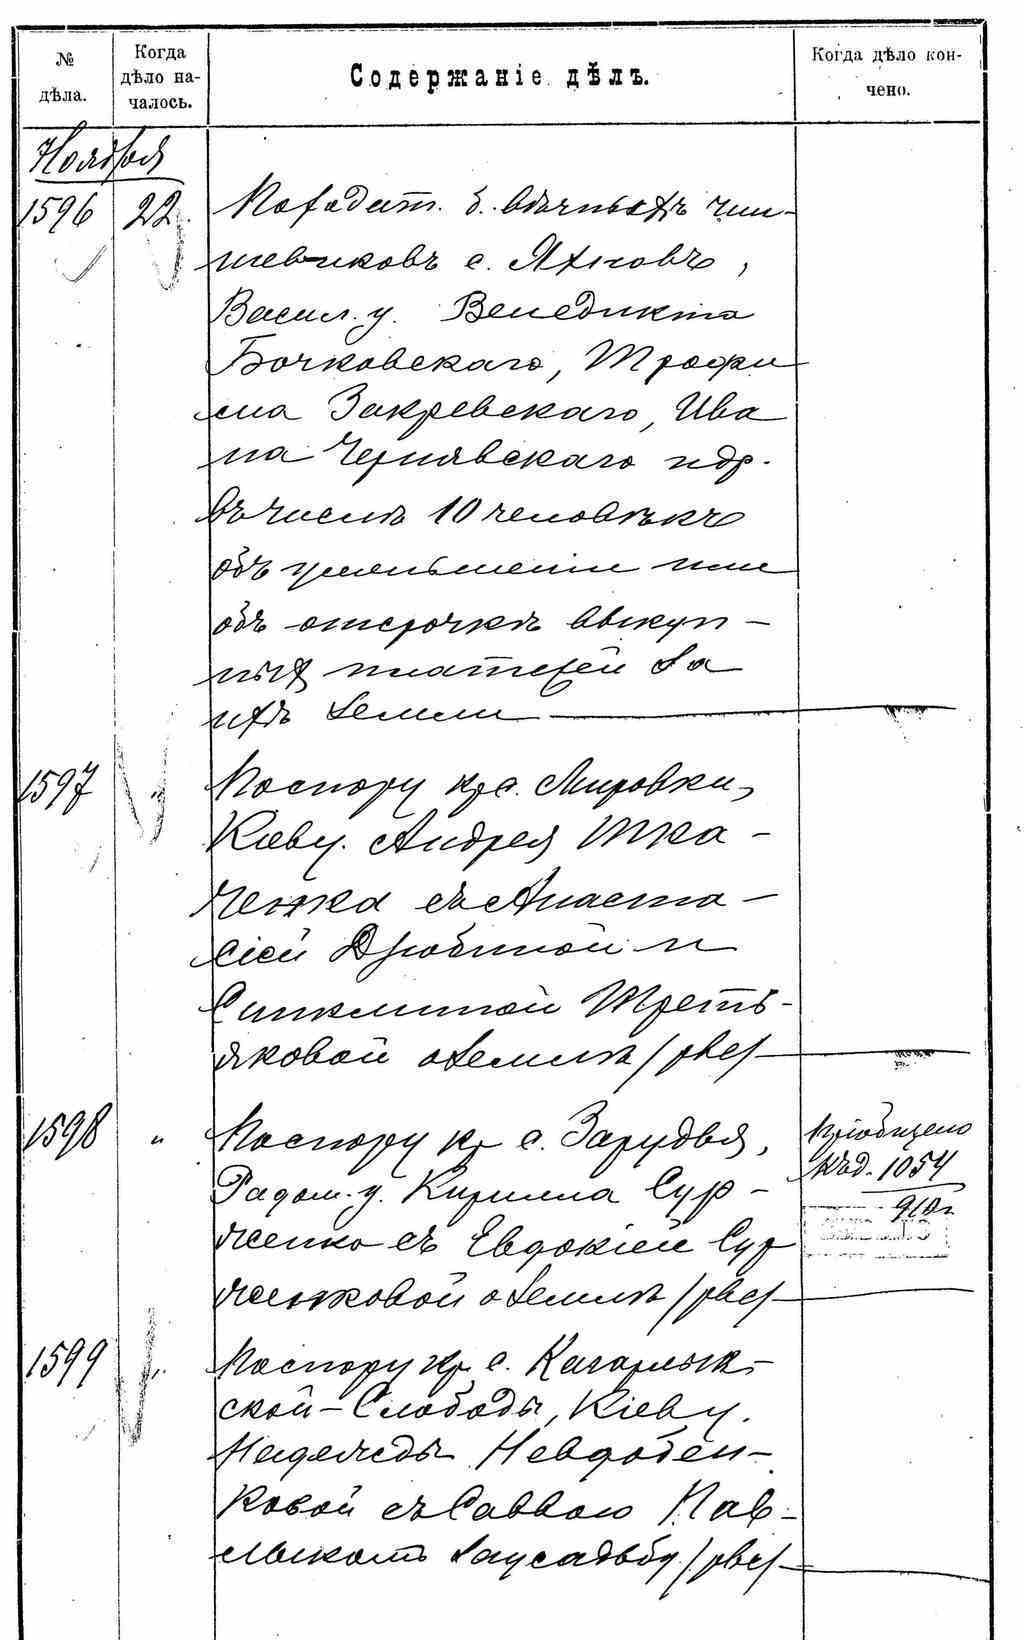 № дѣла.
Когда дѣло на-
чалось.
Содержаніе дѣлъ.
Когда дѣло кон-
чено.
Ноября
1596 22. По ходат. б. вѣчныхъ чин-
шевиковъ с. Яхновъ,
Васил. у. Венедикта
Бочковскаго, Трофи
ма Закревскаго, Ива
на Чернявскаго и др.
въ числѣ 10 человѣкъ
объ уменьшеніи или
объ отсрочкѣ выкуп-
ныхъ платежей за
ихъ земли
1597 " По спору кр. с. Мировки,
Кіев. у. Андрея Тка-
ченка съ Анаста-
сіей Дзюбиной и
Синклитой Треть-
яковой о землѣ /рвс/
1598 " По спору кр. с. Зарудья,
Радом. у. Кирилла Сур-
женко съ Евдокіей Сур
женковой о землѣ /рвс/
Пріобщено
къ д. 1054
910г.
1599 " По спору кр. с. Кагарлык-
ской-Слободы, Кіев. у.
Надежды Невдобен-
ковой съ Саввою Пав-
лыкомъ за усадьбу /рвс/